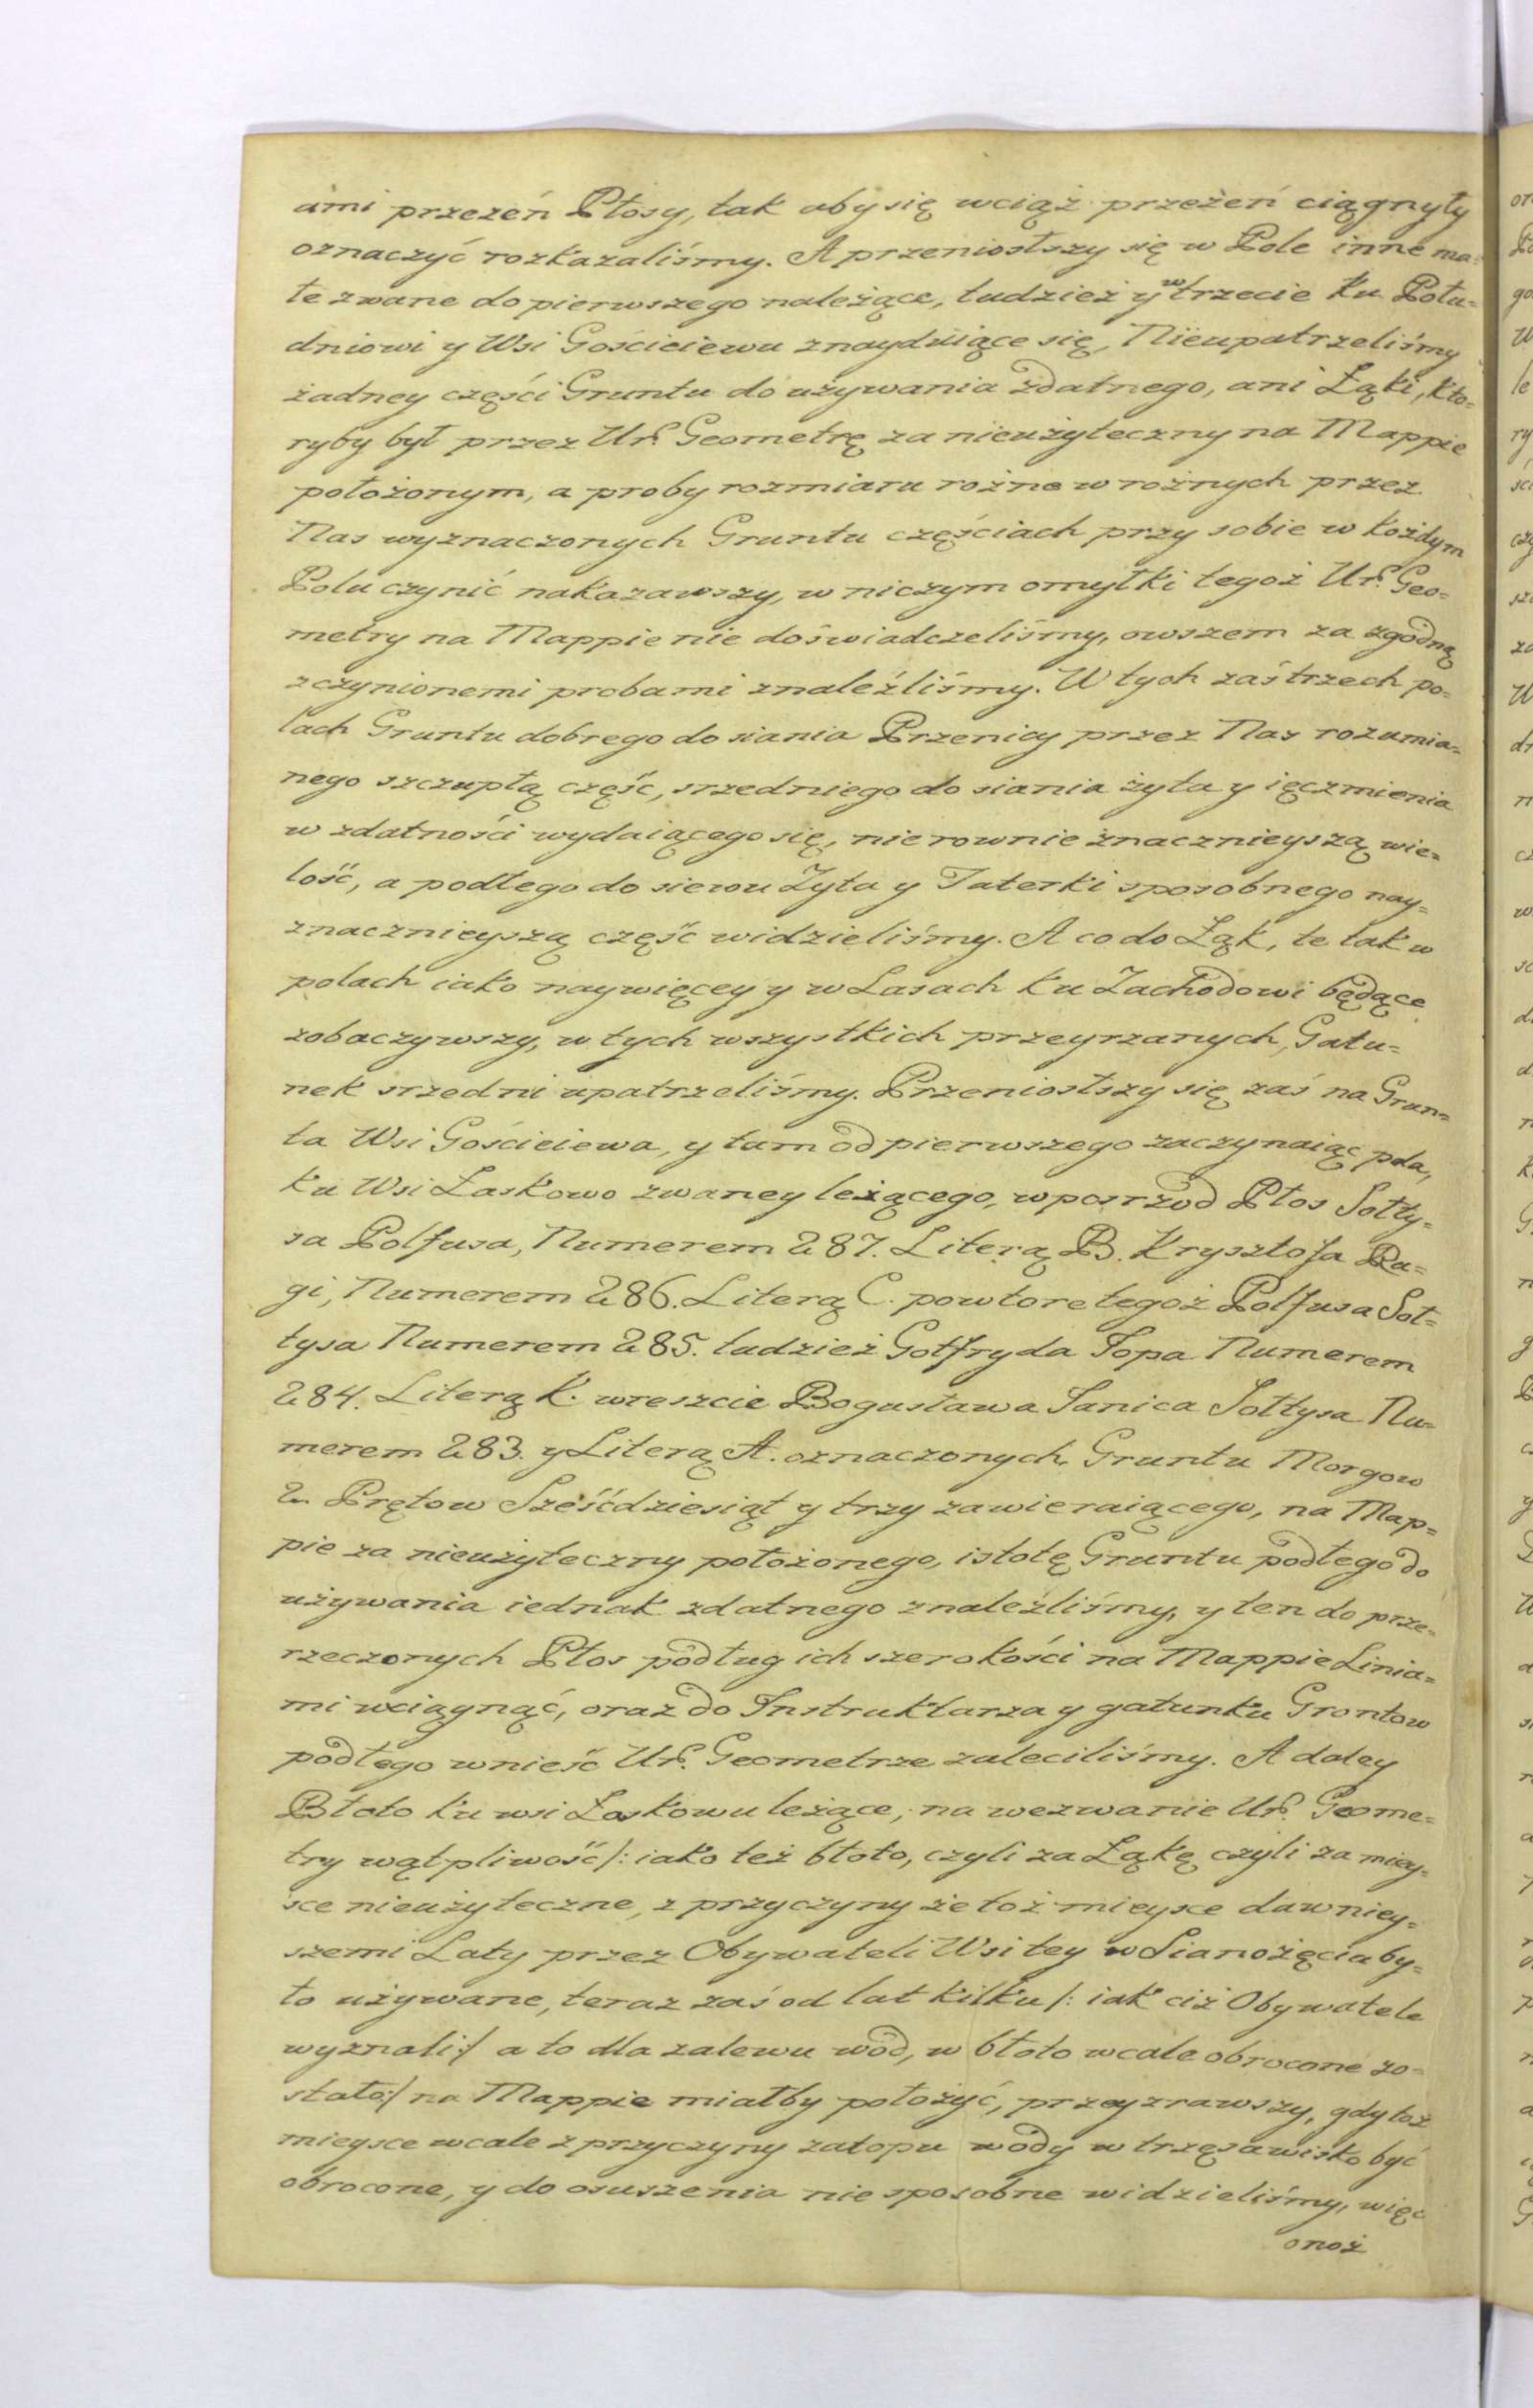 ami przezeń Płosy, tak aby się wciąż przeżeń ciągnyły
oznaczyć rozkazaliśmy. A przeniosłszy się w Pole inne ma=
łe zwane do pierwszego należące, tudzież y w trzecie ku Połu=
dniowi y Wsi Gościeiewu znayduiące się, Nieupatrzeliśmy
żadney części Gruntu do używania zdatnego, ani Łąki, kto=
ryby był przez Ur. Geometrę za nieużyteczny na Mappie
położonym, a proby rozmiaru rożne w rożnych przez
Nas wyznaczonych Gruntu częściach przy sobie w każdym
Polu czynić nakazawszy, w niczym omyłki tegoż Ur. Geo=
metry na Mappie nie doświadczeliśmy, owszem za zgodną
z czynionemi probami znaleźliśmy. W tych zaś trzech po=
lach Gruntu dobrego do siania Przenicy przez Nas rozumia=
nego szczupłą część, srzedniego do siania żyta y ięczmienia
w zdatności wydaiącego się, nierownie znacznieyszą wie=
lość, a podłego do siewu Żyta y Taterki sposobnego nay=
znacznieyszą część widzieliśmy. A co do Łąk, te tak w
polach iako naywięcey y w Lasach ku Zachodowi będące
zobaczywszy, w tych wszystkich przeyrzanych, Gatu=
nek srzedni upatrzeliśmy. Przeniosłszy się zaś na Grun=
ta Wsi Gościeiewa, y tam od pierwszego zaczynaiąc pola,
ku Wsi Łaskowo zwaney leżącego, w posrzod Płos Sołty=
sa Polfusa, Numerem 287. Literą B. Krysztofa Ra=
gi, Numerem 286. Literą C. powtore tegoż Polfusa Soł=
tysa Numerem 285. tudzież Gotfryda Sopa Numerem
284. Literą K. wreszcie Bogusława Janica Sołtysa Nu=
merem 283. y Literą A. oznaczonych Gruntu Morgow
2. Prętow Sześćdziesiąt y trzy zawieraiącego, na Map=
pie za nieużyteczny położonego, istotę Gruntu podłego do
używania iednak zdatnego znaleźliśmy, y ten do prze=
rzeczonych Płos podług ich szerokości na Mappie Linia=
mi wciągnąć, oraz do Instruktarza y gatunku Grontow
podłego wnieść Ur. Geometrze zaleciliśmy. A daley
Błoto ku wsi Łaskowu leżące, na wezwanie Ur. Geome=
try wątpliwość /: iako też błoto, czyli za Łąkę czyli za miey=
sce nieużyteczne, z przyczyny że toż mieysce dawniey=
szemi Laty przez Obywateli Wsi tey w Sianożęcia by=
ło używane, teraz zaś od lat kilku /: iak ciż Obywatele
wyznali :/ a to dla zalewu wód, w błoto wcale obrocone zo=
stało :/ na Mappie miałby położyć, przeyzrawszy, gdy toż
mieysce wcale z przyczyny zatopu wody w trzęsawisko być
obrocone, y do osuszenia nie sposobne widzieliśmy, więc
onoż